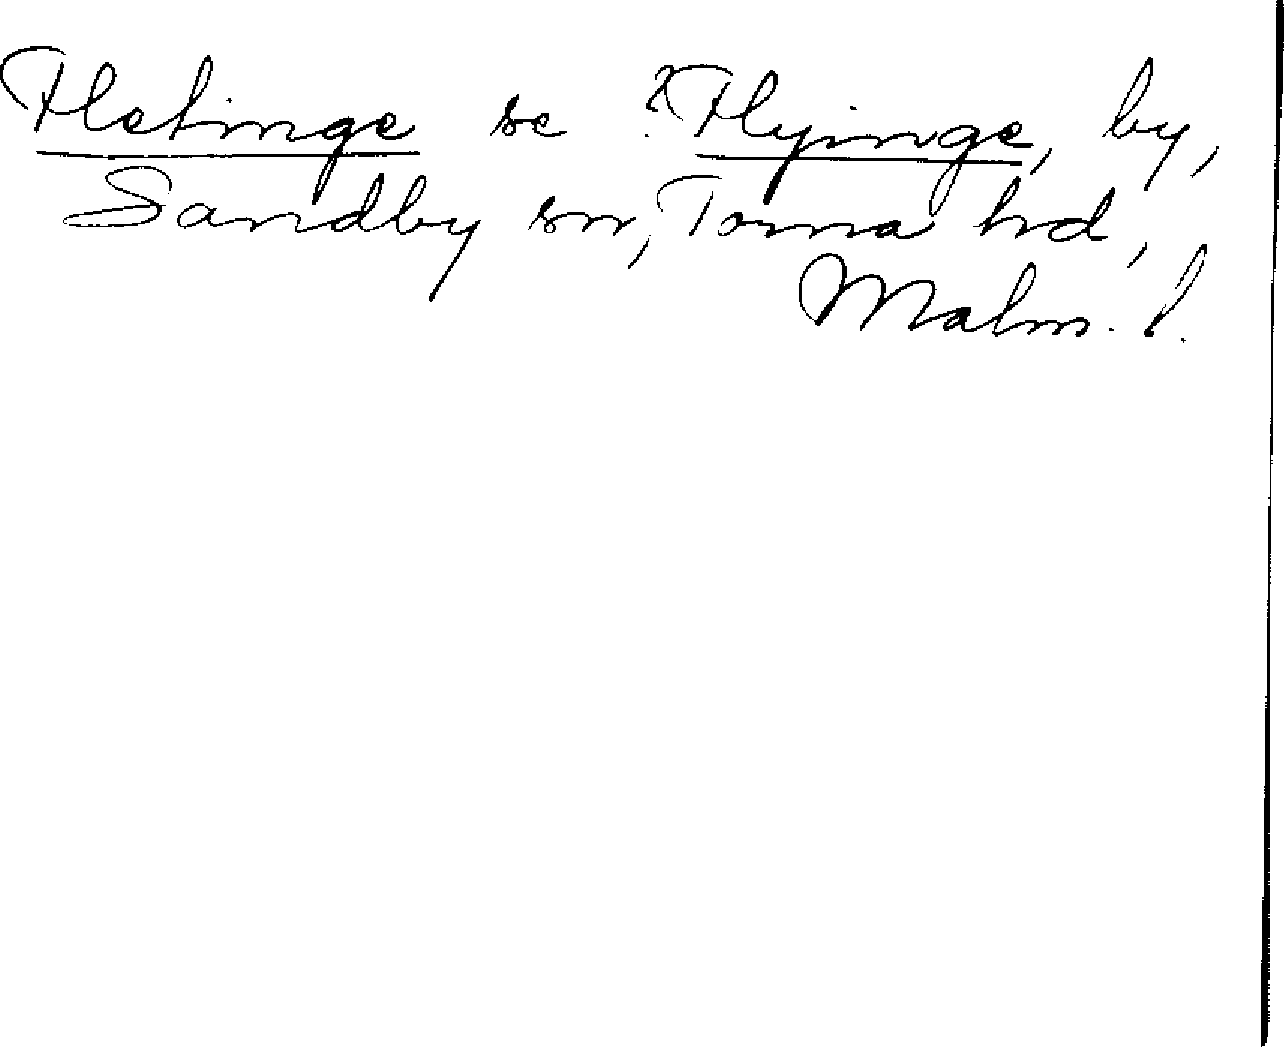 Flehinge se ?Flyinge, by,
Sandby sn, Torna hd,
Malm. l.